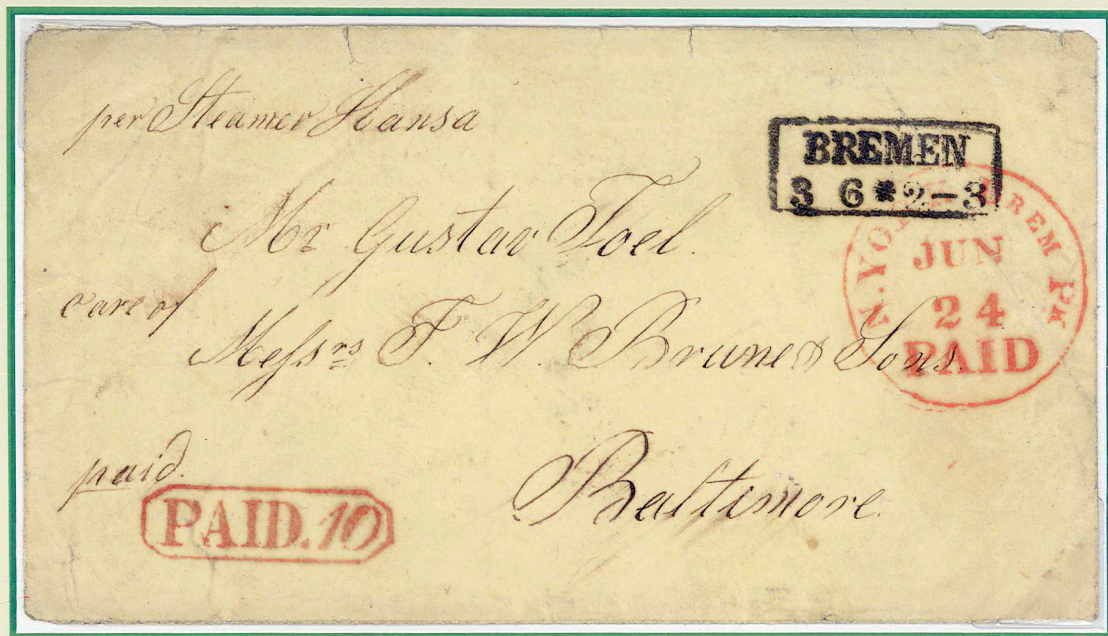 per Steamer Hansa
BREMEN
3 6*2-3
N. YORK BREM PK
JUN
24
PAID
Mr Gustav Toel.
care of
Messrs F. W. Brune & Sons.
paid.
Baltimore.
PAID.10